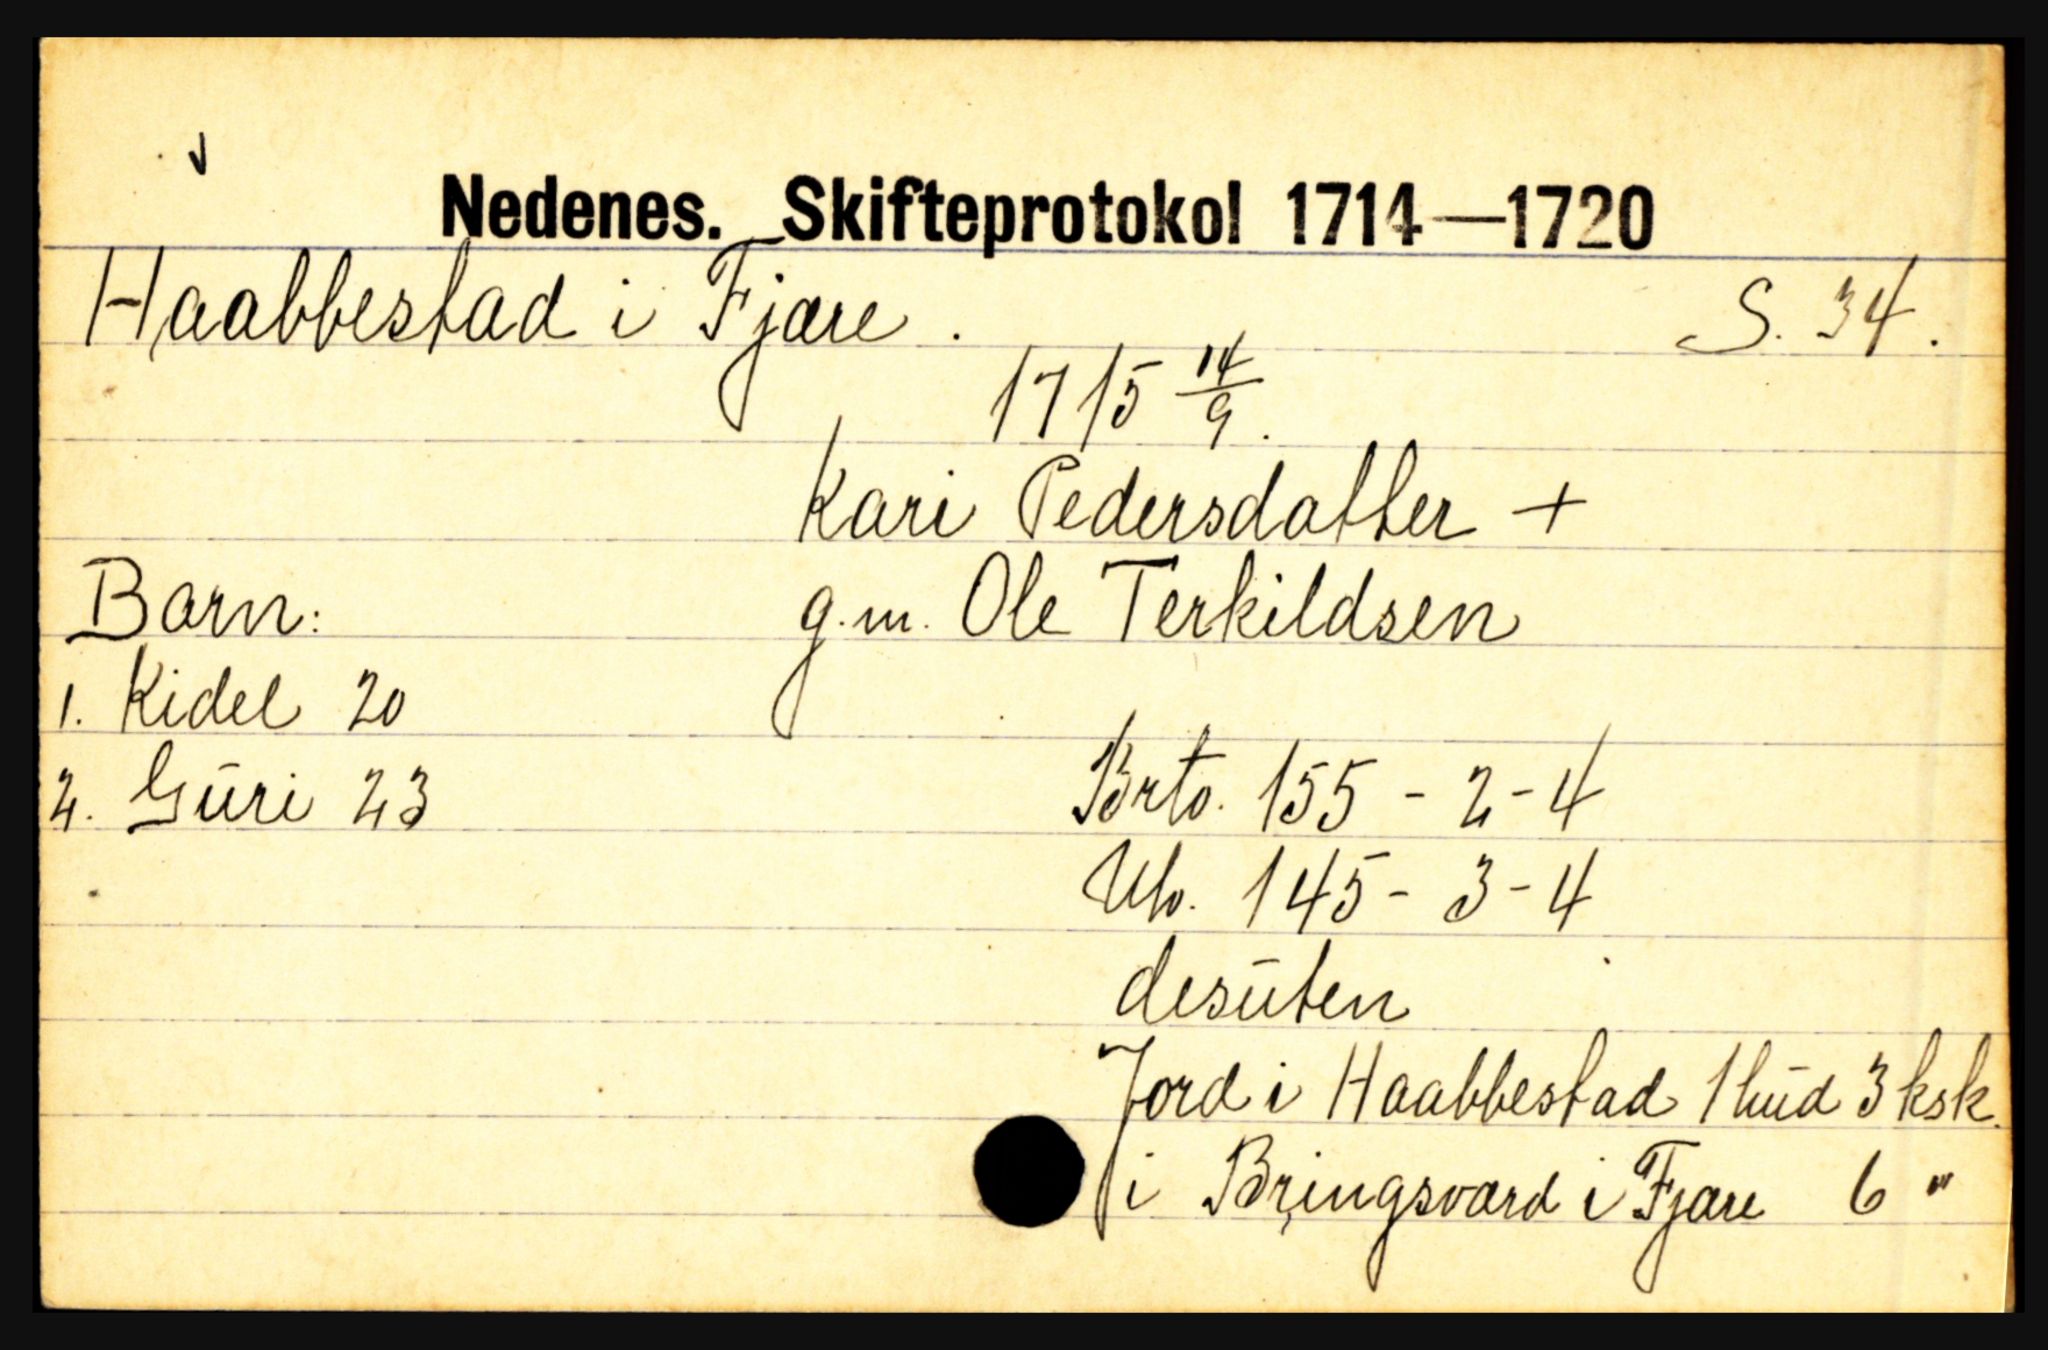 Nedenes. Skifteprotokol 1714—1720
Haabbestad i Fjære. S. 34.
1715 14/9.
Kari Pedersdatter +
Barn: g.m. Ole Terkildsen
1. Kidel 20
2. Guri 23
Brto. 155 - 2 - 4
145 - 3 - 4
desuten
Jord i Haabbestad 1 hud 3 ksk.
i Bringsværd i Fjære 6 "